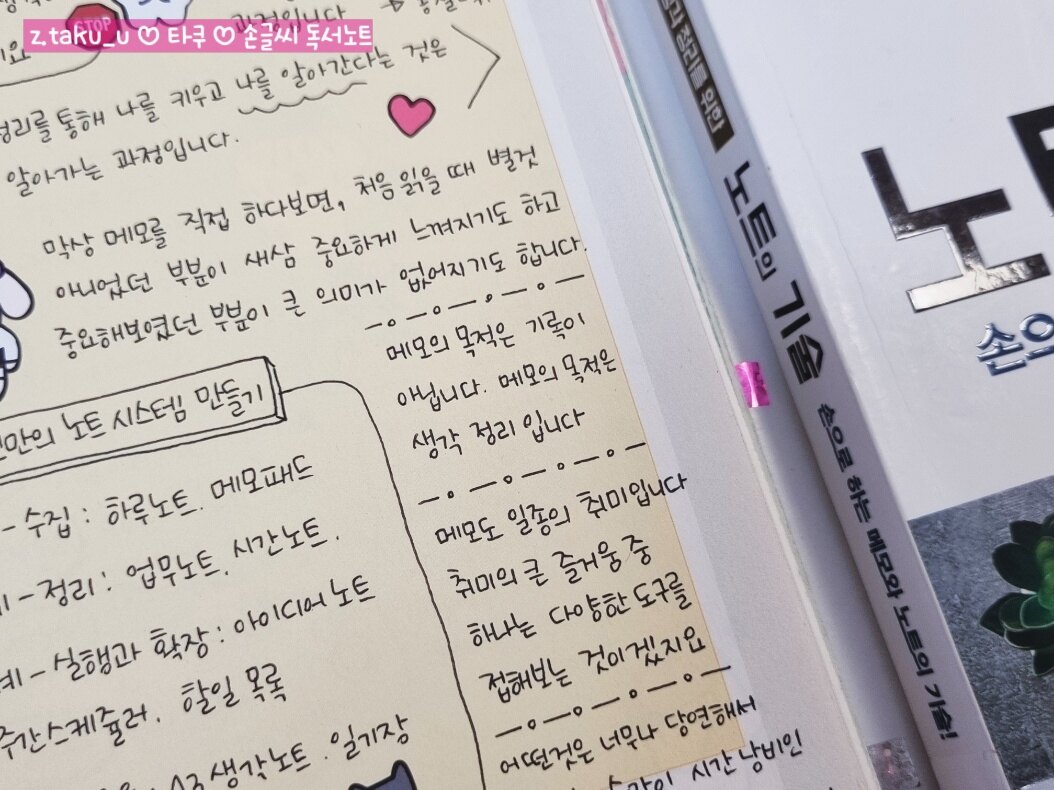 z.taku_u ♡ 타쿠 ♡ 손글씨 독서노트
STOP
과정입니다
정리를 통해 나를 키우고 나를 알아간다는 것은
알아가는 과정입니다.
막상 메모를 직접 하다보면, 처음 읽을 때 별것
아니었던 부분이 새삼 중요하게 느껴지기도 하고
중요해보였던 부분이 큰 의미가 없어지기도 합니다.
메모의 목적은 기록이
아닙니다. 메모의 목적은
생각 정리 입니다
메모도 일종의 취미입니다
취미의 큰 즐거움 중
하나는 다양한 도구를
접해보는 것이겠지요
어떤것은 너무나 당연해서
시간 낭비인
만의 노트 시스템 만들기
- 수집 : 하루노트. 메모패드
- 정리 : 업무노트. 시간노트.
- 실행과 확장 : 아이디어 노트
주간스케쥴러. 할일 목록
생각노트. 일기장
정리를 위한
노트의 기술
손으로 하는 메모와 노트의 기술!
노트
손의